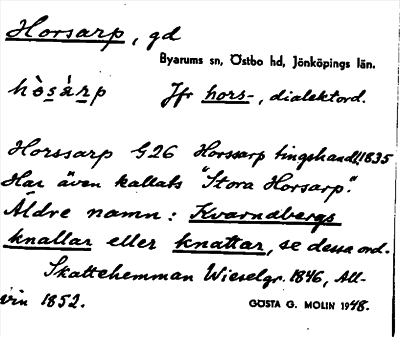 Horsarp, gd
Byarums sn, Östbo hd, Jönköpings län.
hòsàrp Jfr hors-, dialektord.
Horssarp G26 Horssarp tingshandl. 1835
Har även kallats "Stora Horsarp".
Äldre namn: Kvarnabergs
knallar eller knattar, se dessa ord.
Skattehemman Wieselgr. 1846, All-
vin 1852.
GÖSTA G. MOLIN 1948.